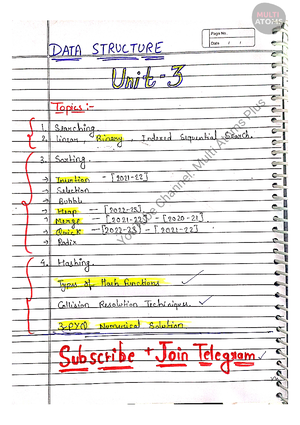 MULTI ATOMS
Page No.
Date / /
DATA STRUCTURE
Unit-3
Topics:-
1. Searching.
2. linear, Binary, Indexed Sequential Search.
3. Sorting.
→ Insertion - [2021-22]
→ Selection
→ Bubble
→ Heap - [2022-23]
→ Merge - [2021-22] - [2020-21]
→ Quick - [2022-23] - [2021-22]
→ Radix
4. Hashing.
Types of Hash Functions
Collision Resolution Techniques.
3-PYQ Numerical Solution
Subscribe + Join Telegram
YouTube Channel: Multi Atoms Plus